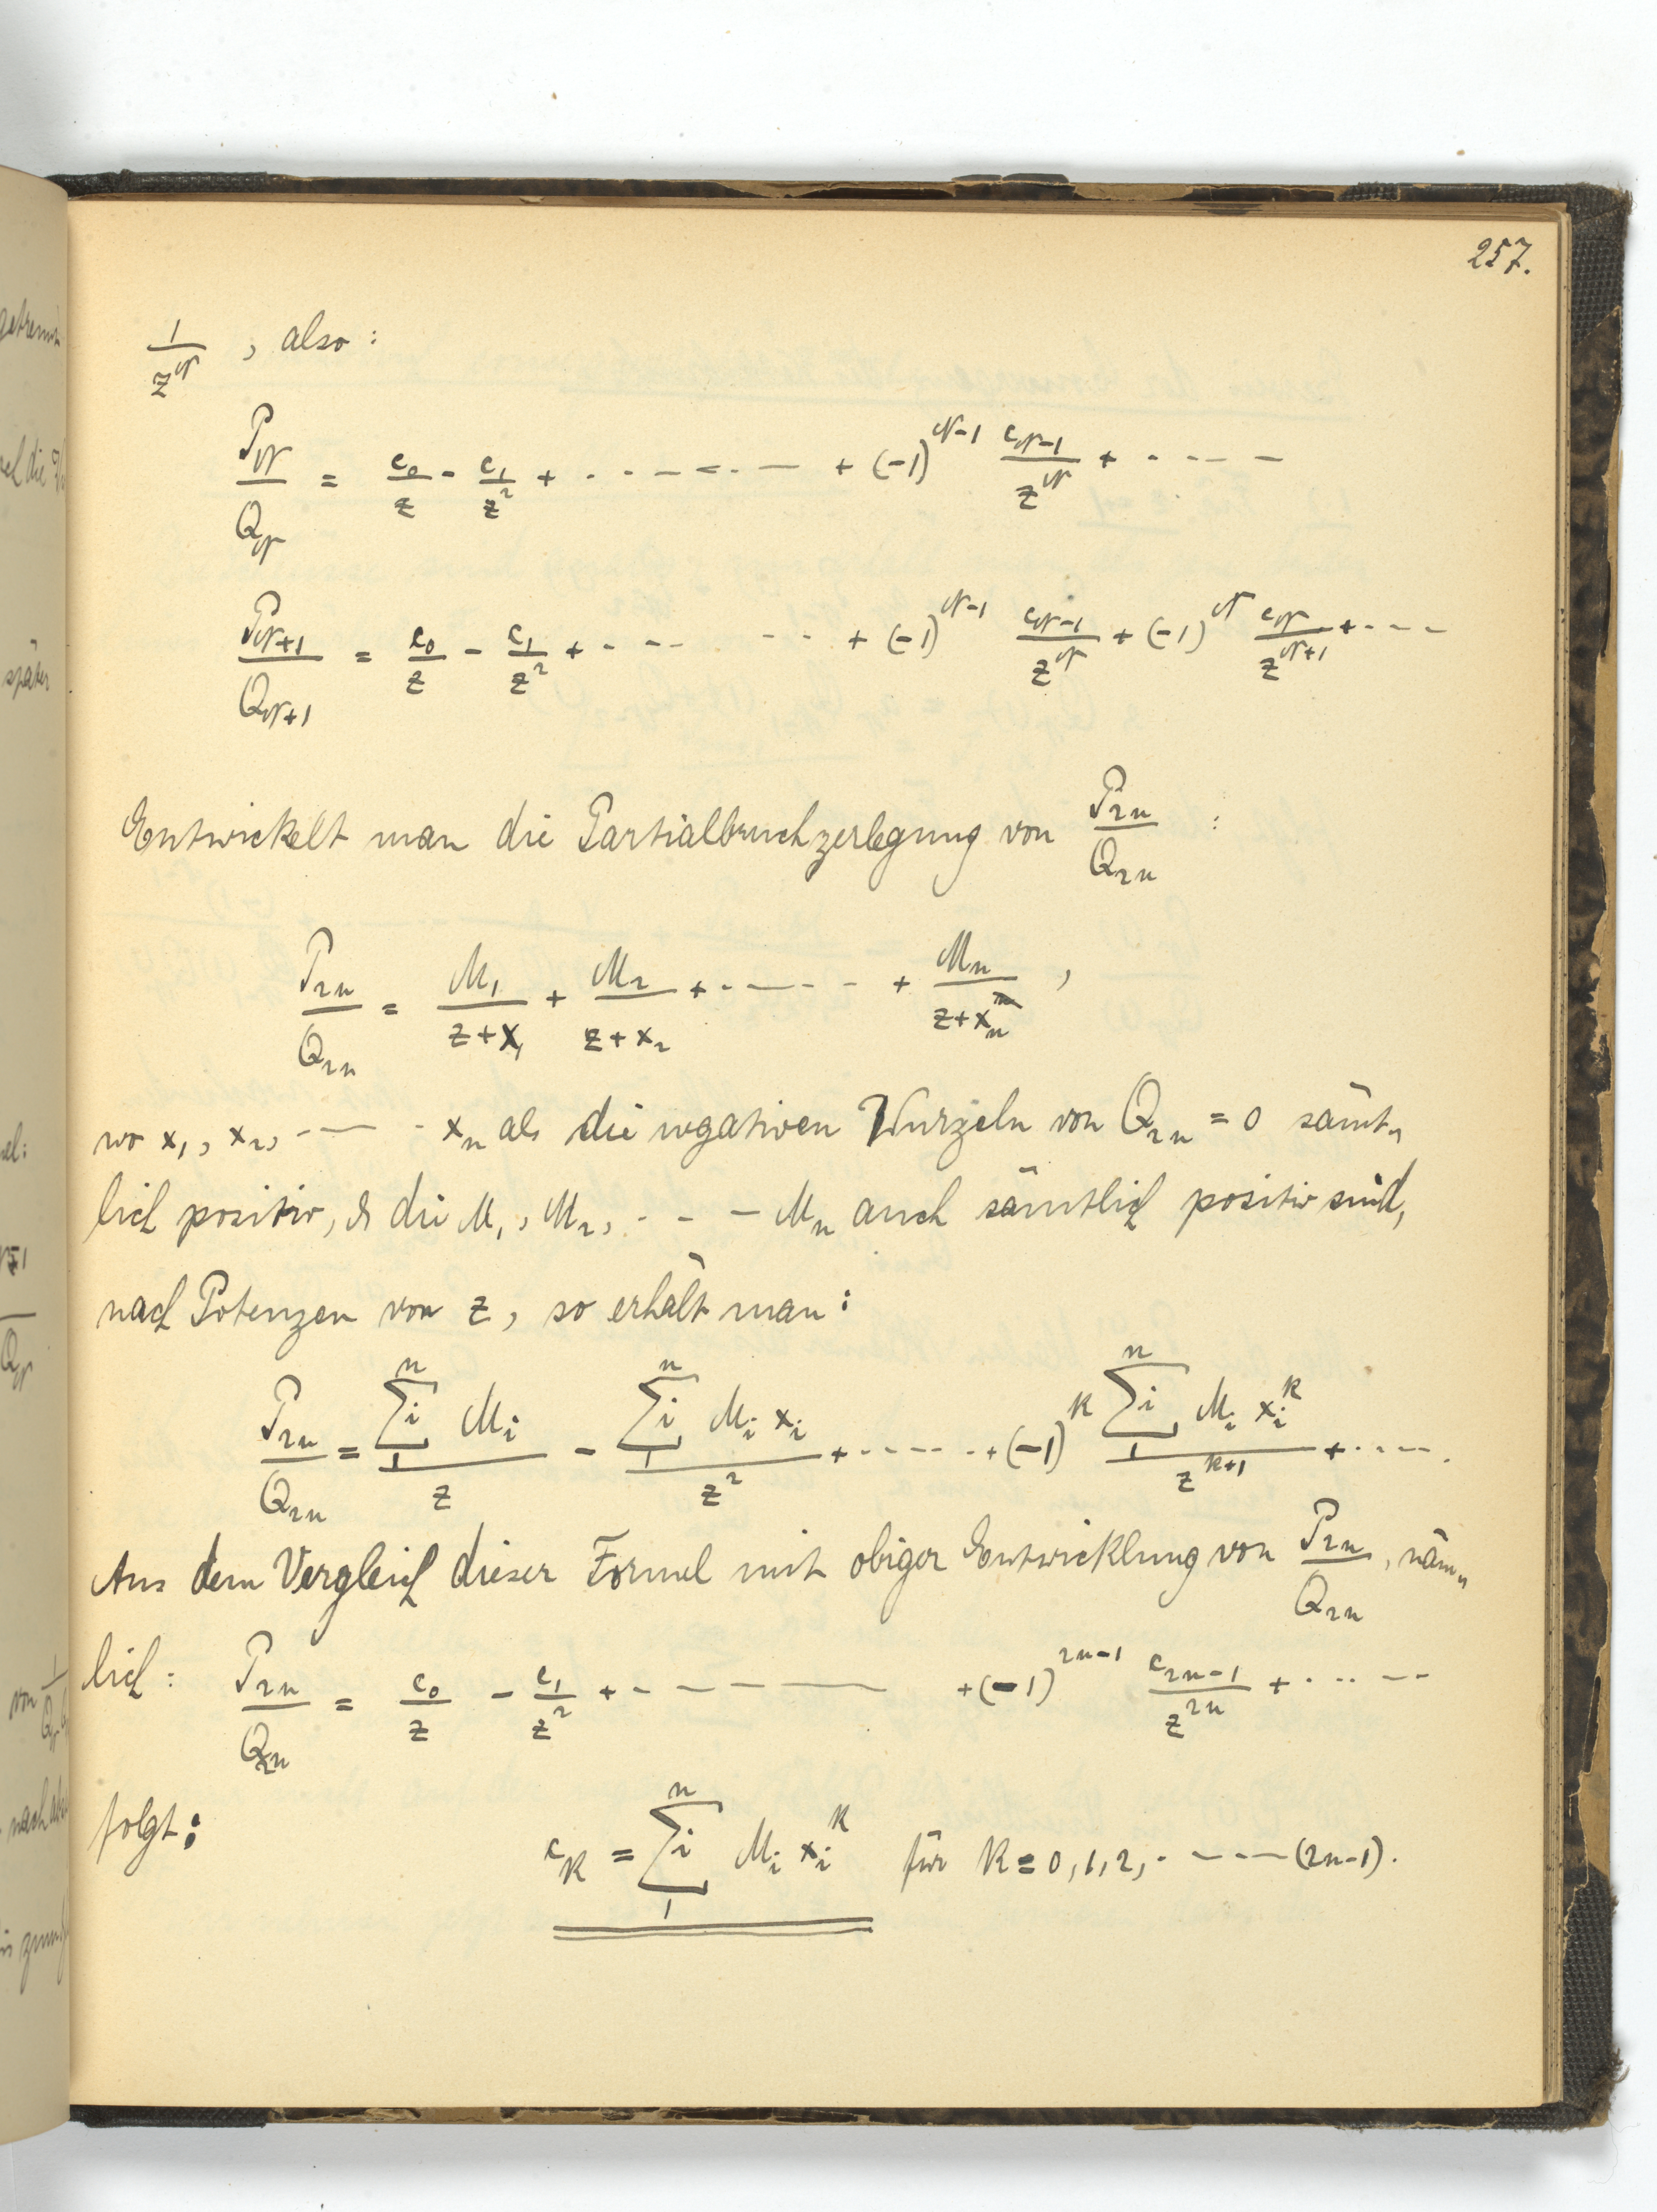 257.
1/z^ν , also :
P_ν/Q_ν = c_0/z - c_1/z^2 + · · — — — · — + (-1)^{ν-1} c_{ν-1}/z^ν + · — — —
P_{ν+1}/Q_{ν+1} = c_0/z - c_1/z^2 + · — — · · + (-1)^{ν-1} c_{ν-1}/z^ν + (-1)^ν c_ν/z^{ν+1} + · — —
Entwickelt man die Partialbruchzerlegung von P_{2n}/Q_{2n} :
P_{2n}/Q_{2n} = M_1/(z+x_1) + M_2/(z+x_2) + · — — — · · + M_n/(z+x_n) ,
wo x_1, x_2, · — — · x_n als die negativen Wurzeln von Q_{2n} = 0 sämt„
lich positiv, & die M_1, M_2, · — — M_n auch sämtlich positiv sind,
nach Potenzen von z, so erhält man :
P_{2n}/Q_{2n} = ∑_1^n i M_i / z - ∑_1^n i M_i x_i / z^2 + · — — — · · + (-1)^k ∑_1^n i M_i x_i^k / z^{k+1} + · · — — .
Aus dem Vergleich dieser Formel mit obiger Entwicklung von P_{2n}/Q_{2n}, näm„
lich : P_{2n}/Q_{2n} = c_0/z - c_1/z^2 + · — — — — — + (-1)^{2n-1} c_{2n-1}/z^{2n} + · · · — —
folgt : c_k = ∑_1^n i M_i x_i^k für k = 0, 1, 2, · — — — (2n-1).
später